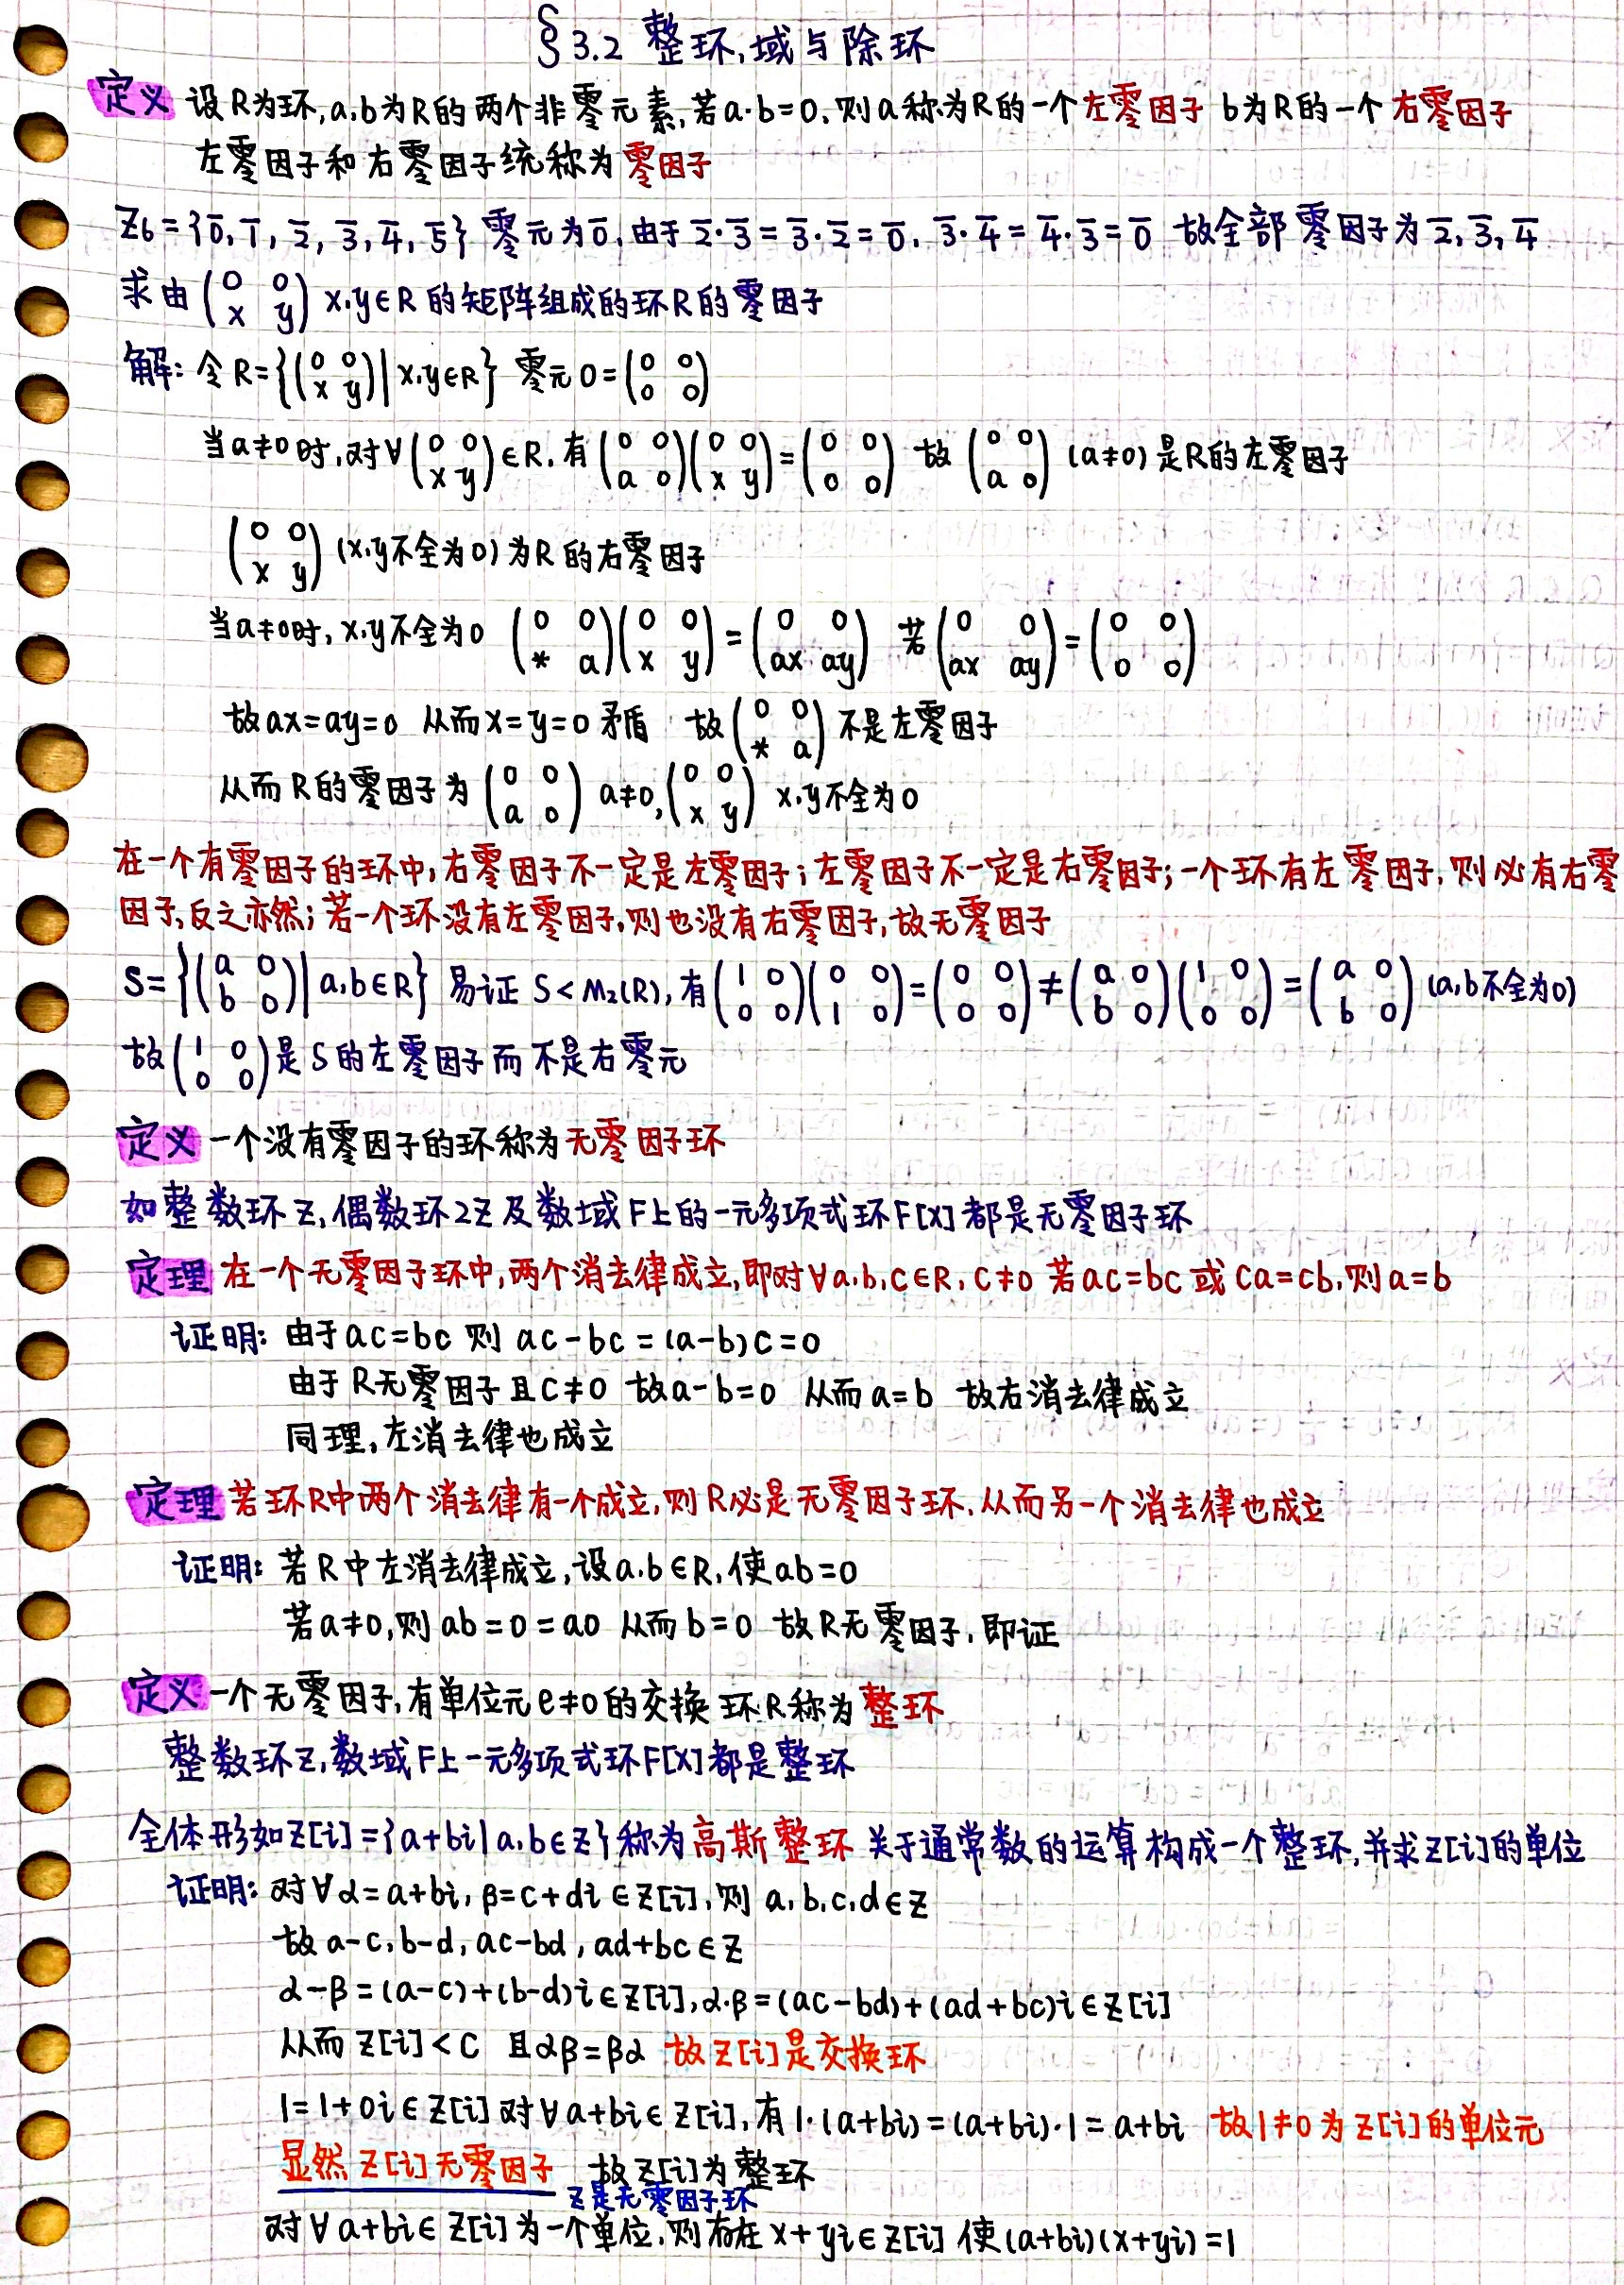 §3.2 整环,域与除环
定义 设R为环,a,b为R的两个非零元素,若a·b=0,则a称为R的一个左零因子 b为R的一个右零因子
左零因子和右零因子统称为零因子
Z₆={0̅,1̅,2̅,3̅,4̅,5̅} 零元为0̅,由于2̅·3̅=3̅·2̅=0̅,3̅·4̅=4̅·3̅=0̅ 故全部零因子为2̅,3̅,4̅
求由(0 0; x y) x,y∈R的矩阵组成的环R的零因子
解:令R={(0 0; x y)|x,y∈R} 零元0=(0 0; 0 0)
当a≠0时,对∀(0 0; x y)∈R,有(0 0; a 0)(0 0; x y)=(0 0; 0 0) 故(0 0; a 0)(a≠0)是R的左零因子
(0 0; x y)(x,y不全为0)为R的右零因子
当a≠0时,x,y不全为0 (0 0; * a)(0 0; x y)=(0 0; ax ay) 若(0 0; ax ay)=(0 0; 0 0)
故ax=ay=0 从而x=y=0矛盾 故(0 0; * a)不是左零因子
从而R的零因子为(0 0; a 0) a≠0,(0 0; x y) x,y不全为0
在一个有零因子的环中,右零因子不一定是左零因子;左零因子不一定是右零因子;一个环有左零因子,则必有右零
因子,反之亦然;若一个环没有左零因子,则也没有右零因子,故无零因子
S={(a 0; b 0)|a,b∈R} 易证S<M₂(R),有(1 0; 0 0)(0 0; 1 0)=(0 0; 0 0)≠(a 0; b 0)(1 0; 0 0)=(a 0; b 0)(a,b不全为0)
故(1 0; 0 0)是S的左零因子而不是右零元
定义 一个没有零因子的环称为无零因子环
如整数环Z,偶数环2Z及数域F上的一元多项式环F[x]都是无零因子环
定理 在一个无零因子环中,两个消去律成立,即对∀a,b,c∈R,c≠0 若ac=bc或ca=cb,则a=b
证明:由于ac=bc 则 ac-bc=(a-b)c=0
由于R无零因子且c≠0 故a-b=0 从而a=b 故右消去律成立
同理,左消去律也成立
定理 若环R中两个消去律有一个成立,则R必是无零因子环,从而另一个消去律也成立
证明:若R中左消去律成立,设a,b∈R,使ab=0
若a≠0,则ab=0=a0 从而b=0 故R无零因子,即证
定义 一个无零因子,有单位元e≠0的交换环R称为整环
整数环Z,数域F上一元多项式环F[x]都是整环
全体形如Z[i]={a+bi|a,b∈Z}称为高斯整环 关于通常数的运算构成一个整环,并求Z[i]的单位
证明:对∀α=a+bi,β=c+di∈Z[i],则 a,b,c,d∈Z
故a-c,b-d,ac-bd,ad+bc∈Z
α-β=(a-c)+(b-d)i∈Z[i],α·β=(ac-bd)+(ad+bc)i∈Z[i]
从而Z[i]<C 且αβ=βα 故Z[i]是交换环
1=1+0i∈Z[i]对∀a+bi∈Z[i],有1·(a+bi)=(a+bi)·1=a+bi 故1≠0为Z[i]的单位元
显然Z[i]无零因子 故Z[i]为整环
Z是无零因子环
对∀a+bi∈Z[i]为一个单位,则存在x+yi∈Z[i] 使(a+bi)(x+yi)=1